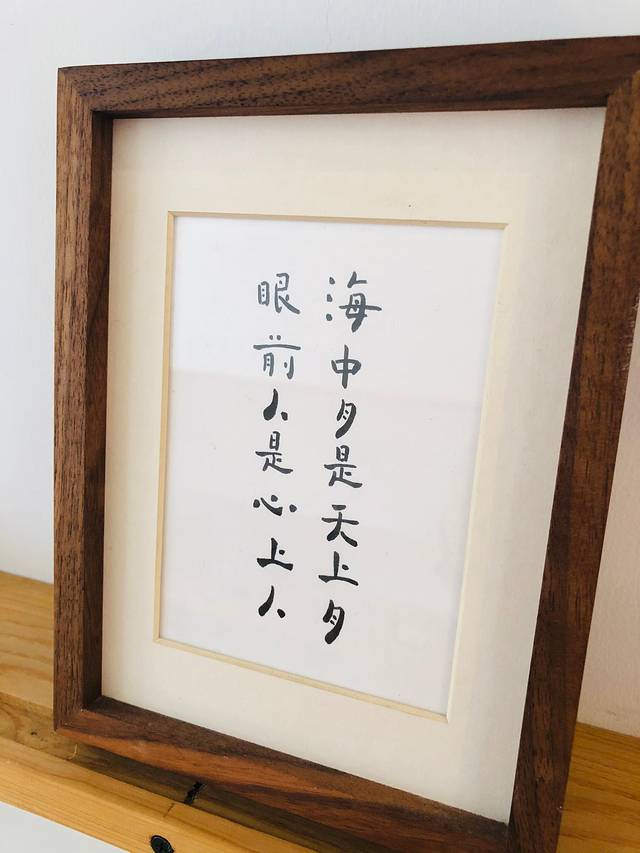 海中月是天上月
眼前人是心上人